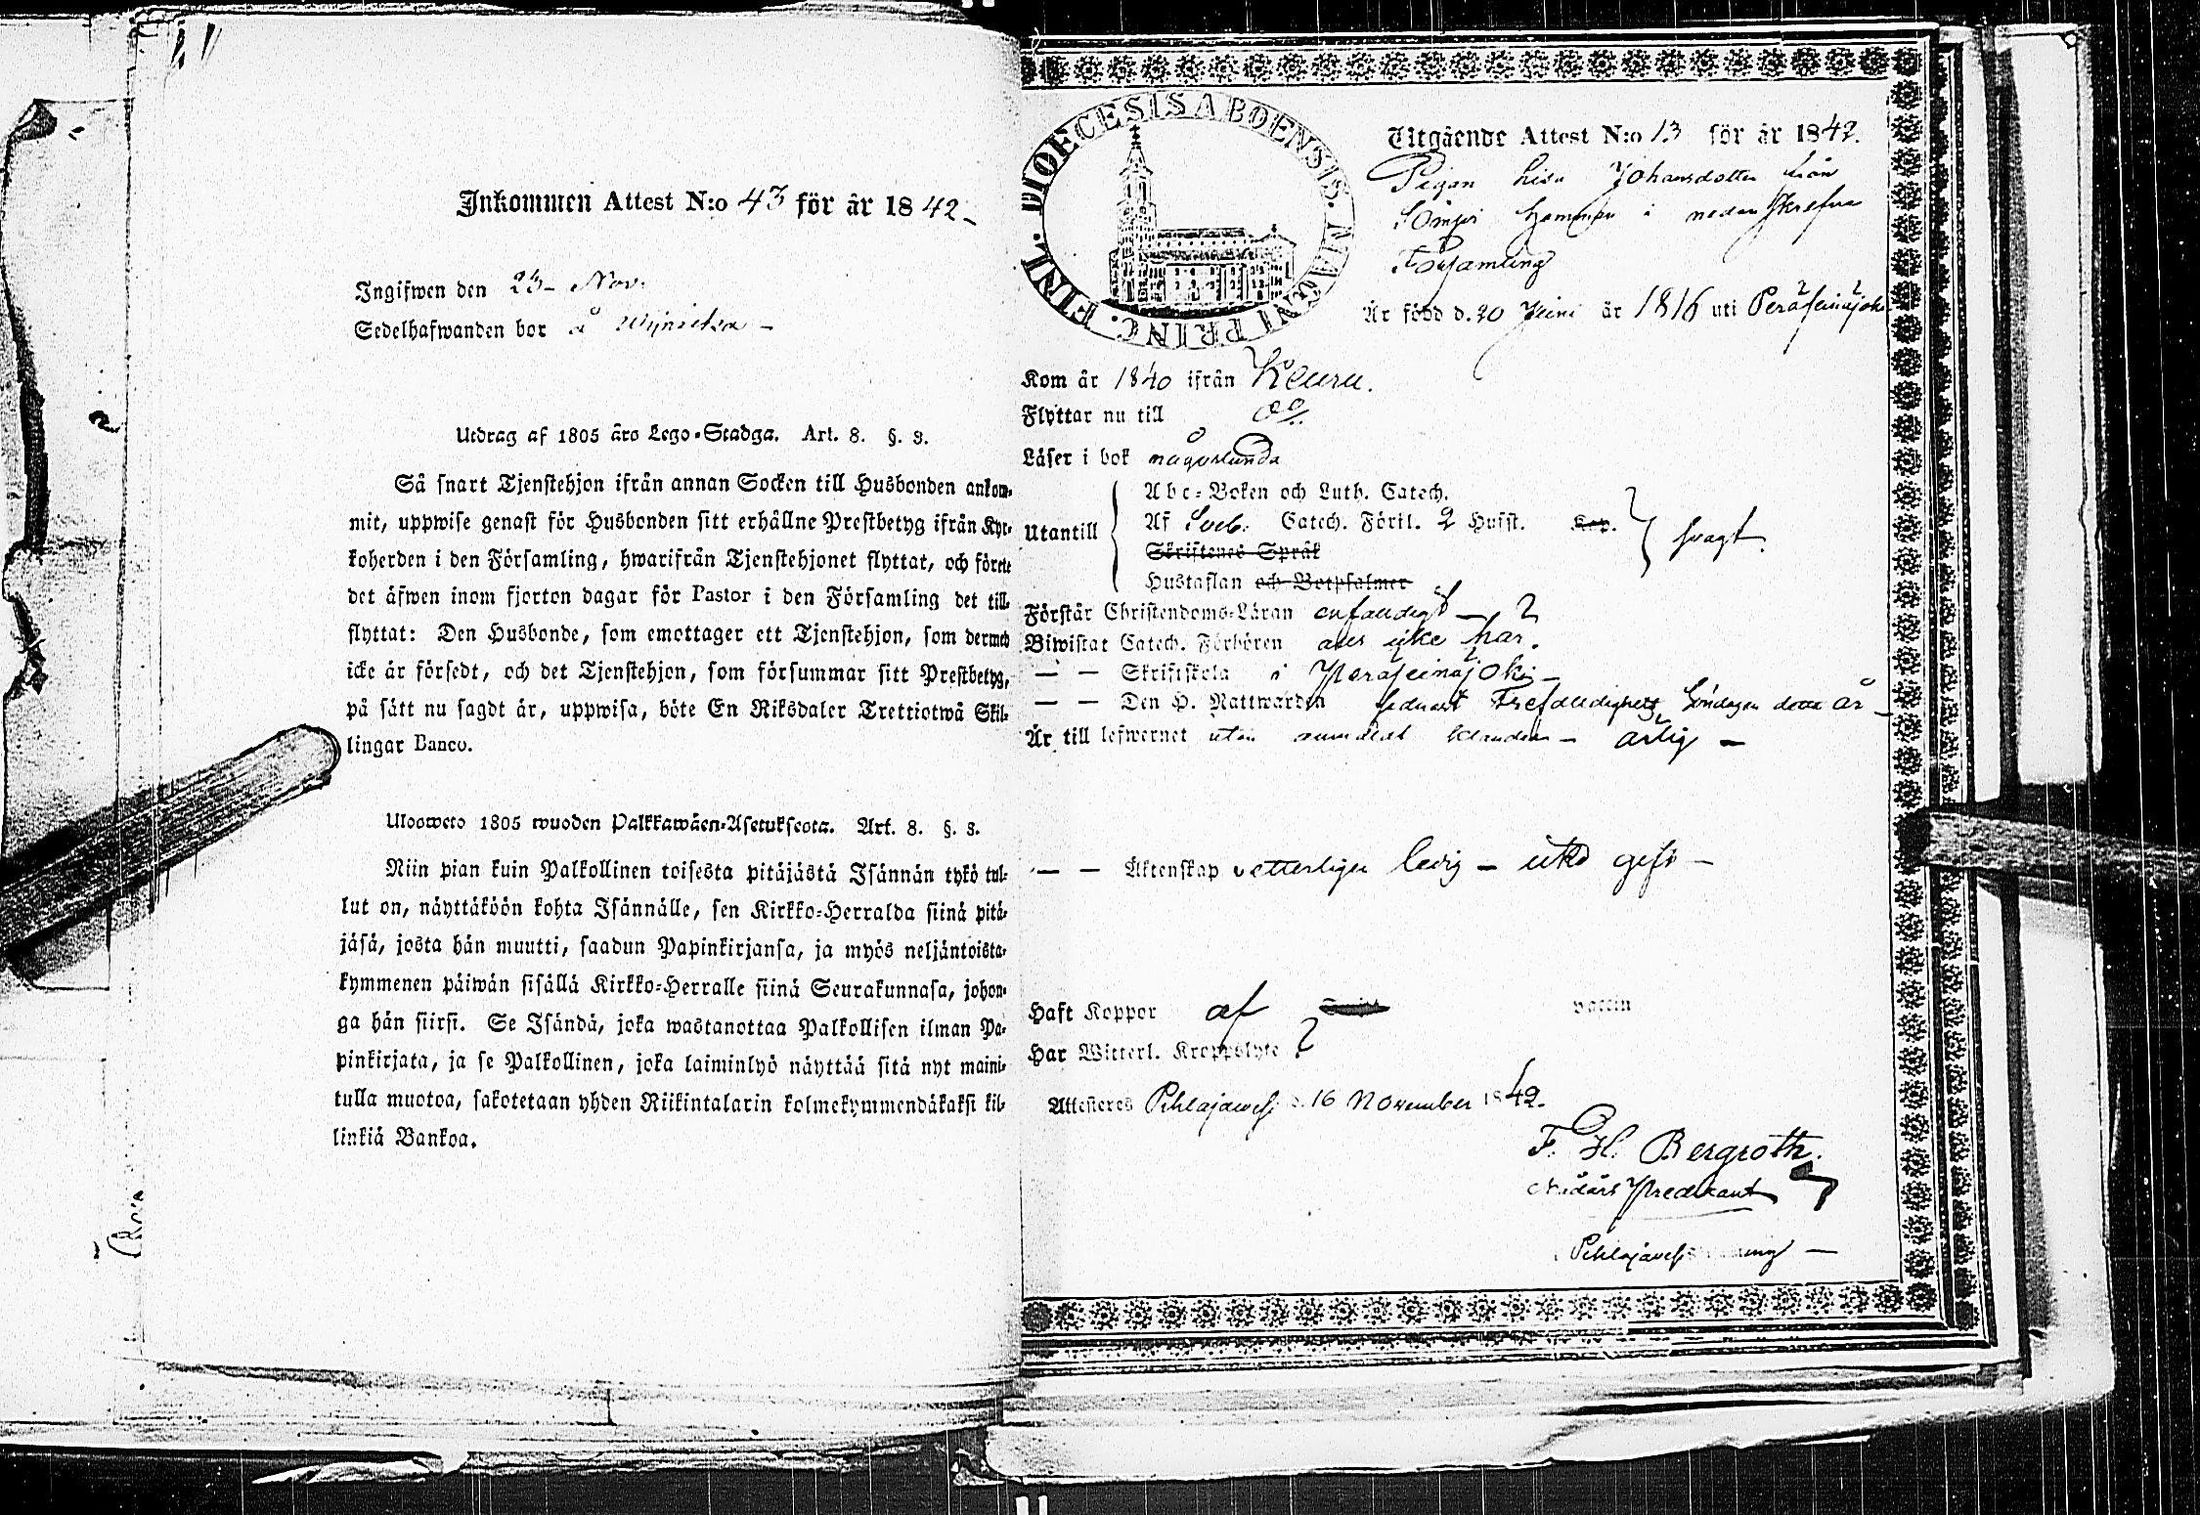 Inkommen Attest N:o 43 för år 1842 –
Ingifwen den 23 – Nov.
Sedelhafwanden bor å
Utdrag af 1805 års Lego-Stadga. Art. 8. §. 3.
Så snart Tjenstehjon ifrån annan Socken till Husbonden ankom-
mit, uppwise genast för Husbonden sitt erhållne Prestbetyg ifrån Kyr-
koherden i den Församling, hwarifrån Tjenstehjonet flyttat, och förete
det äfwen inom fjorton dagar för Pastor i den Församling det till-
flyttat: Den Husbonde, som emottager ett Tjenstehjon, som dermed
icke är försedt, och det Tjenstehjon, som försummar sitt Prestbetyg,
på sätt nu sagdt är, uppwisa, böte En Riksdaler Trettiotwå Skil-
lingar Banco.
Uloswето 1805 wuoden Palkkawäen-Asetuksesta. Art. 8. §. 3.
Niin pian kuin Palkollinen toisesta pitäjästä Isännän tykö tul-
lut on, näyttäköön kohta Isännälle, sen Kirkko-Herralda siinä pitä-
jäsä, josta hän muutti, saadun Papinkirjansa, ja myös neljäntoista-
kymmenen päiwän sisällä Kirkko-Herralle siinä Seurakunnasa, johon-
ga hän siirsi. Se Isändä, joka wastanottaa Palkollisen ilman Pa-
pinkirjata, ja se Palkollinen, joka laiminlyö näyttää sitä nyt maini-
tulla muotoa, sakotetaan yhden Riikintalarin kolmekymmendäkaksi kil-
linkiä Bankoa.
DIOECESIS ABOENSIS. MAGNI PRINC. FINL.
Utgående Attest N:o 13 för år 1842.
Pigan Lisa Johansdotter från
hemman i nedanskrefne
Församling
Är född d. 20 Juni år 1816 uti Peräseinäjoki
Kom år 1840 ifrån Keuru.
Flyttar nu till do.
Läser i bok någorlunda
Utantill
Abc-Boken och Luth. Catech.
Af Sveb. Catech. Förkl. 2 Hufst. Kap.
Skriftenes Språk
Hustaflan och Botpsalmer
svagt.
Förstår Christendoms-Läran enfaldigt –
Biwistat Catech. Förhören
– – Skriftskola i Peräseinäjoki –
– – Den H. Nattwarden senast Trefaldighets Söndagen detta år –
Är till lefwernet utan klander – ärlig –
– – Äktenskap vetterligen ledig – gift –
Haft Koppor af
Har Witterl. Kroppslyte
Attesteres Pihlajawesi d. 16 November 1842.
F. H. Bergroth.
Nådårs Predikant